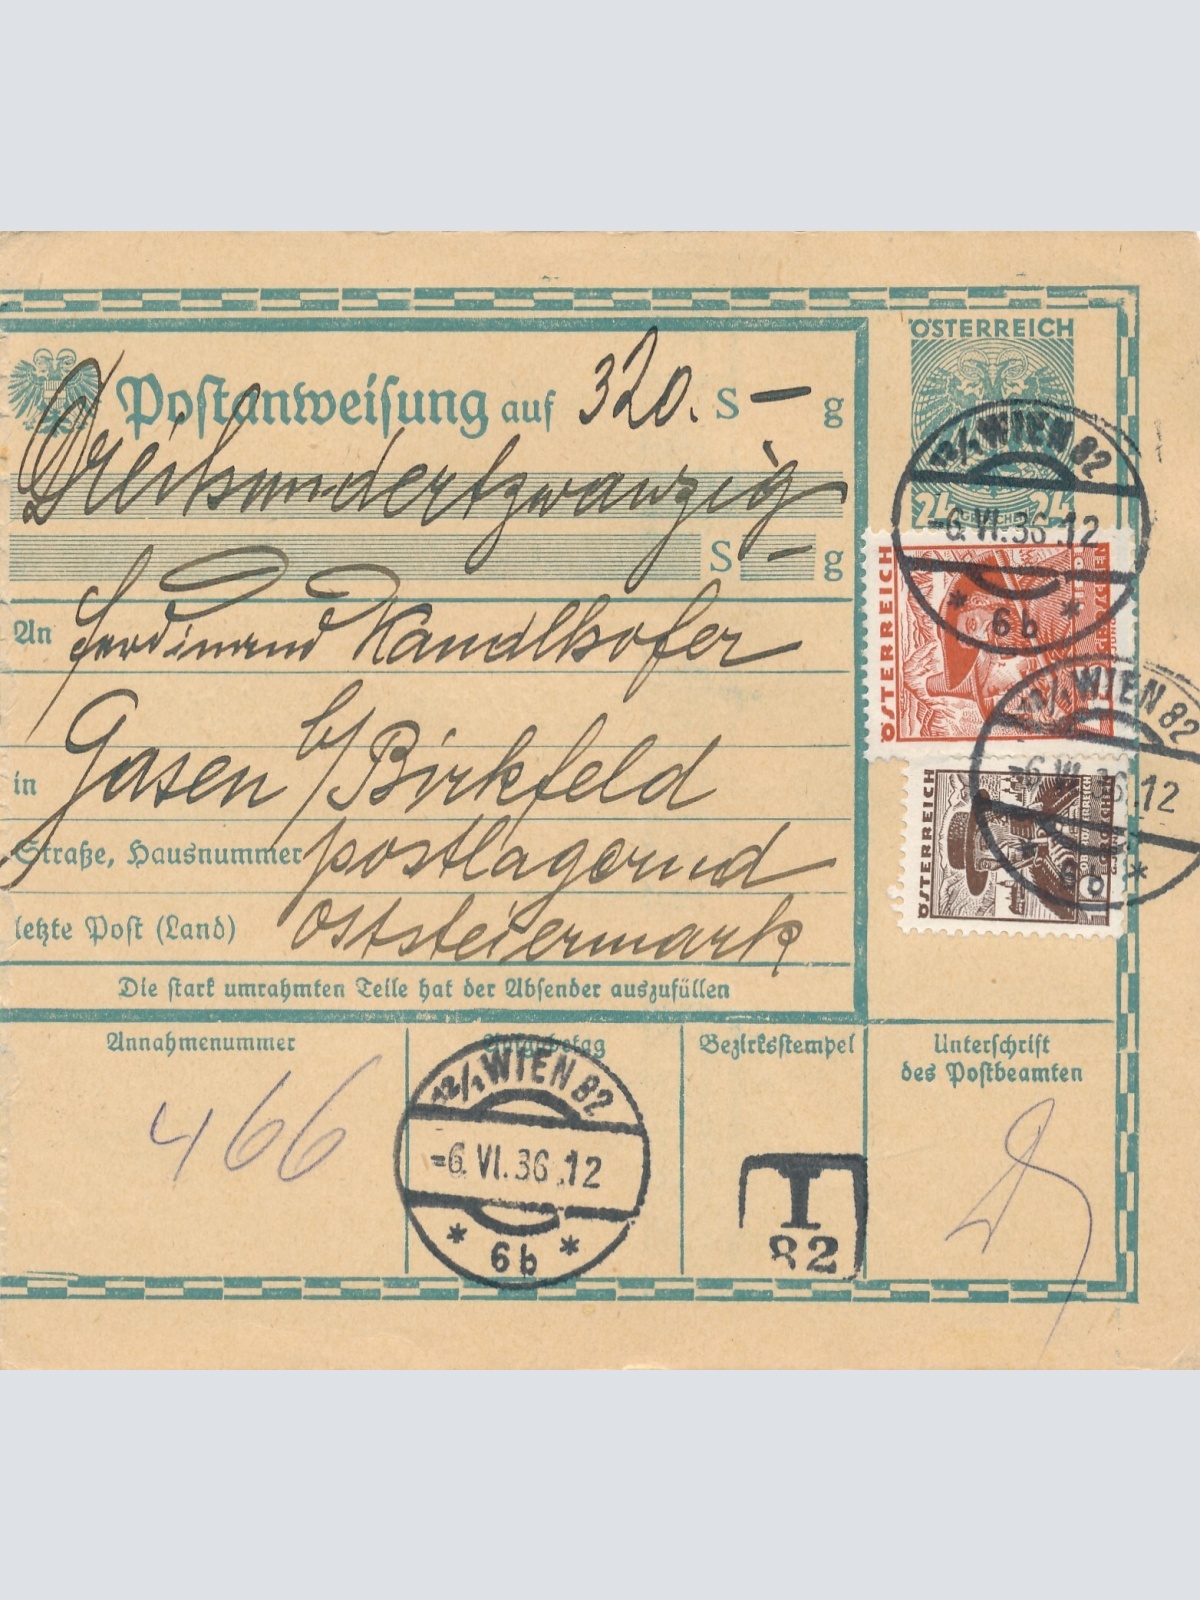 ÖSTERREICH
Postanweisung auf 320. S — g
Dreihundertzwanzig
S — g
An Ferdinand Kandlhofer
in Gasen b/Birkfeld
Straße, Hausnummer postlagernd
letzte Post (Land) Oststeiermark
Die stark umrahmten Teile hat der Absender auszufüllen
24 24
12/1 WIEN 82
-6.VI.36.12
* 6b *
ÖSTERREICH
WIEN 82
-6.VI.36.12
6b *
ÖSTERREICH
Annahmenummer
466
Aufgabetag
12/1 WIEN 82
-6.VI.36.12
* 6b *
Bezirksstempel
T
82
Unterschrift
des Postbeamten